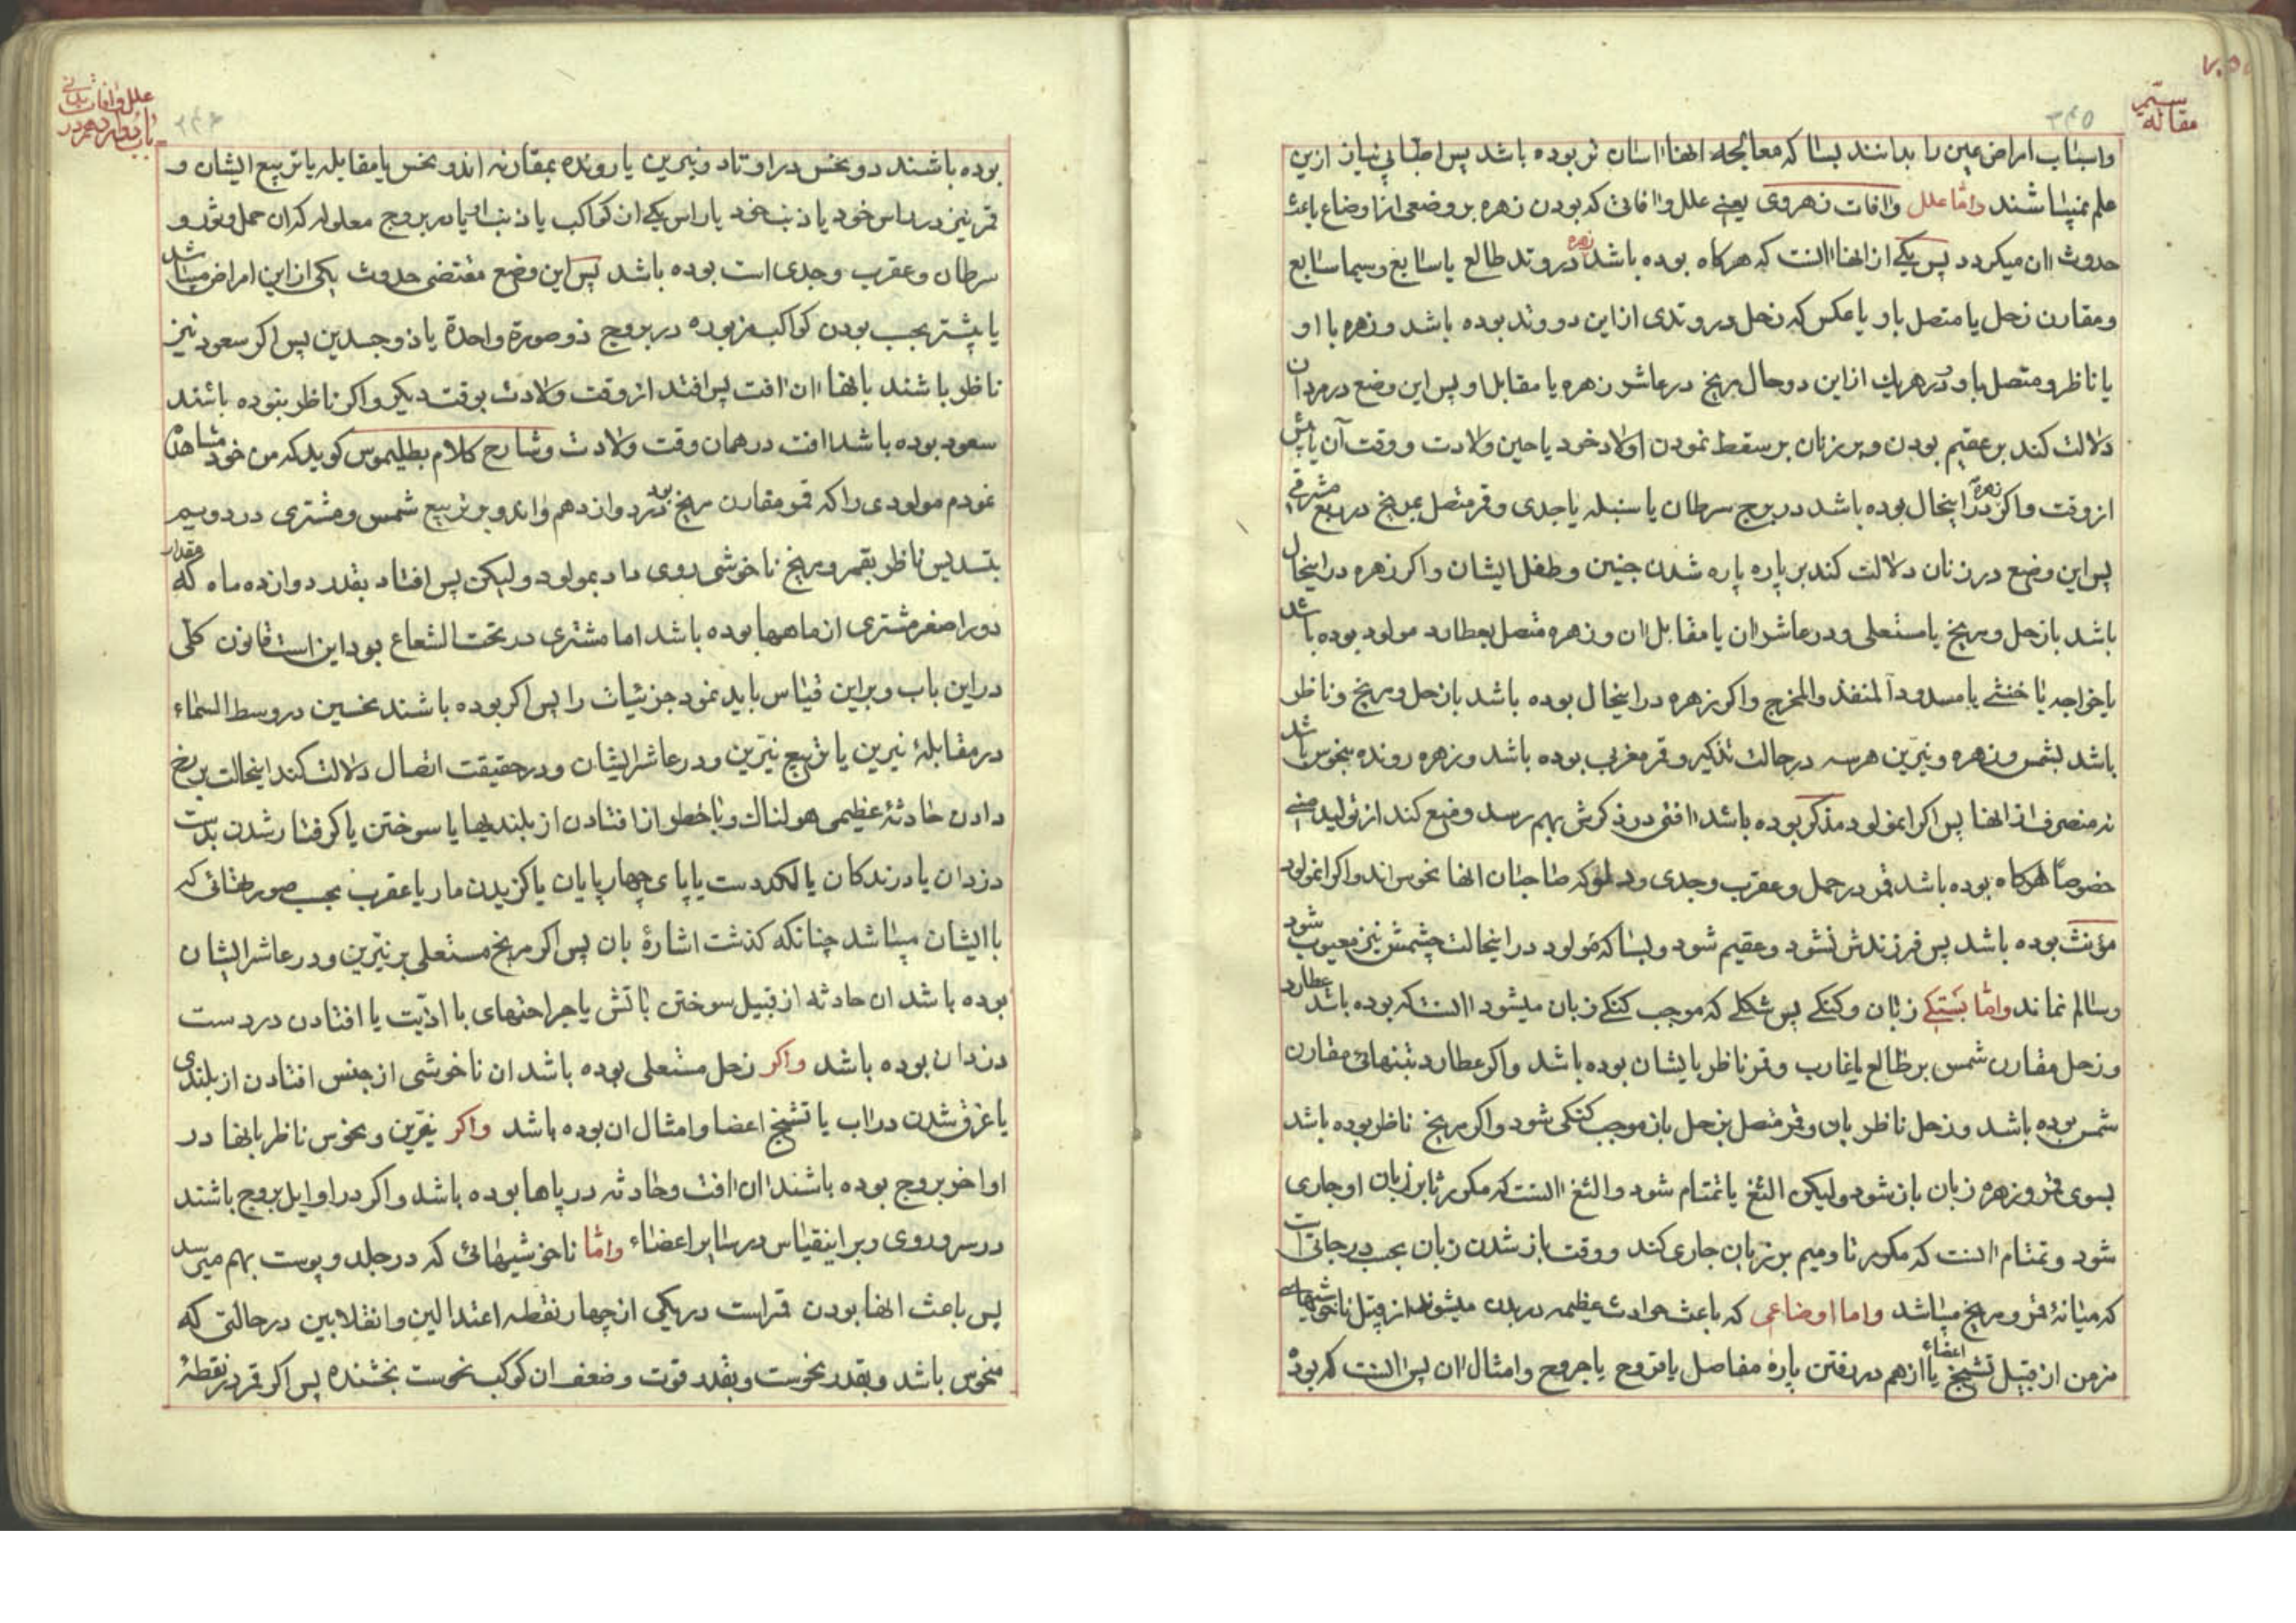 مقاله سیم
۳۴۵
واسباب امراض عین را بدانند بسا که معالجه انها اسان تر بوده باشد پس اطبا بی نیاز ازین
علم نمیباشند واما علل وافات زهروی یعنی علل وافاتی که بودن زهره بر وضعی از اوضاع باعث
حدوث ان میکردد پس یکی از انها انست که هرکاه بوده باشد زهره در وتد طالع یا سابع وسیما سابع
ومقارن زحل یا متصل باو یا عکس که زحل در وتدی از این دو وتد بوده باشد وزهره با او
یا ناظر ومتصل باو ودر هریك از این دو حال مریخ در عاشر زهره یا مقابل او پس این وضع در مردان
دلالت کند بر عقیم بودن وبر زنان بر سقط نمودن اولاد خود یا حین ولادت ووقت آن یا پیش
از وقت واکر زهره در اینحال بوده باشد در برج سرطان یا سنبله یا جدی وقمر متصل بمریخ در ربع مشرقی
پس این وضع در زنان دلالت کند بر پاره پاره شدن جنین وطفل ایشان واکر زهره در اینحال
باشد با زحل ومریخ یا مستعلی ودر عاشر ان یا مقابل ان وزهره متصل بعطارد مولود بوده باشد
یا خواجه یا خنثی یا مسدود المنفذ والمخرج واکر زهره در اینحال بوده باشد با زحل ومریخ وناظر
باشد بشمس وزهره ونیرین هرسه در حالت تذکیر وقمر مغربی بوده باشد وزهره رونده بنحوس باشد
نه منصرف از انها پس اکر انمولود مذکر بوده باشد افتی در ذکرش بهم رسد ومنع کند از تولید منی
خصوصا هرکاه بوده باشد قمر در حمل وعقرب وجدی ودلو که صاحبان انها نحوس اند واکر انمولود
مؤنث بوده باشد پس فرزندش نشود وعقیم شود وبسا که مولود در اینحالت چشمش نیز معیوب شود
وسالم نماند واما بستکی زبان وکنکی پس شکلی که موجب کنکی زبان میشود انست که بوده باشد عطارد
وزحل مقارن شمس بر طالع یا غارب وقمر ناظر بایشان بوده باشد واکر عطارد بتنهائی مقارن
شمس بوده باشد وزحل ناظر بان وقمر متصل بزحل باز موجب کنکی شود واکر مریخ ناظر بوده باشد
بسوی قمر وزهره زبان باز شود ولیکن الثغ یا تمتام شود والثغ انست که مکرر ثا بر زبان او جاری
شود وتمتام انست که مکرر تا ومیم بر زبان جاری کند ووقت باز شدن زبان بحسب درجاتی است
که میانهٔ قمر ومریخ میباشد واما اوضاعی که باعث حوادث عظیمه در بدن میشوند از قبیل ناخوشیهای
مزمن از قبیل تشنج اعضاء یا از هم در رفتن پارهٔ مفاصل یا قروح یا جروح وامثال ان پس انست که بوده
علل وافات بدنی
باب دهم در
۳۴۶
بوده باشند دو نحس در اوتاد ونیرین یا رونده بمقارنه اندو نحس یا مقابله یا تربیع ایشان و
قمر نیز در راس خود یا ذنب خود یا راس یکی از کواکب یا ذنب او یا در بروج معلوله که ان حمل وثور و
سرطان وعقرب وجدی است بوده باشد پس این وضع مقتضی حدوث یکی از این امراض میباشد
یا بیشتر بحسب بودن کواکب مزبوره در بروج ذو صورة واحدة یا ذو جسدین پس اکر سعود نیز
ناظر باشند بانها ان افت پس افتد از وقت ولادت بوقت دیکر واکر ناظر نبوده باشند
سعود بوده باشد افت در همان وقت ولادت وشارح کلام بطلیموس کوید که من خود مشاهده
نمودم مولودی را که قمر مقارن مریخ بود در دوازدهم واندو بر تربیع شمس ومشتری در دویم
بتسدیس ناظر بقمر ومریخ ناخوشی روی داد بمولود ولیکن پس افتاد بقدر دوازده ماه که مقدار
دور اصغر مشتری از ماهها بوده باشد اما مشتری در تحت الشعاع بود این است قانون کلی
در این باب وبر این قیاس باید نمود جزئیات را پس اکر بوده باشند نحسین در وسط السماء
در مقابلهٔ نیرین یا تربیع نیرین ودر عاشر ایشان ودر حقیقت اتصال دلالت کند اینحالت بر رخ
دادن حادثهٔ عظیمی هولناك وبا خطر از افتادن از بلندیها یا سوختن یا کرفتار شدن بدست
دزدان یا درندکان یا لکد دست یا پای چهار پایان یا کزیدن مار یا عقرب بحسب صورتهائی که
با ایشان میباشد چنانکه کذشت اشارهٔ بان پس اکر مریخ مستعلی بر نیرین ودر عاشر ایشان
بوده باشد ان حادثه از قبیل سوختن باتش یا جراحتهای با اذیت یا افتادن در دست
دزدان بوده باشد واکر زحل مستعلی بوده باشد ان ناخوشی از جنس افتادن از بلندی
یا غرق شدن در اب یا تشنج اعضا وامثال ان بوده باشد واکر نیرین ونحوس ناظر بانها در
اواخر بروج بوده باشند ان افت وحادثه در پاها بوده باشد واکر در اوایل بروج باشند
در سر وروی وبر اینقیاس در سایر اعضاء واما ناخوشیهائی که در جلد وپوست بهم میرسد
پس باعث انها بودن قمر است در یکی از چهار نقطه اعتدالین وانقلابین در حالتی که
منحوس باشد وبقدر نحوست وبقدر قوت وضعف ان کوکب نحوست بخشنده پس اکر قمر در نقطهٔ